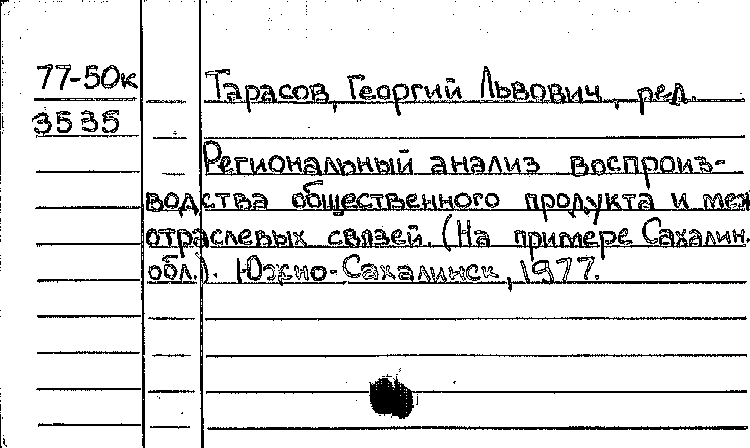 77-50к
Тарасов, Георгий Львович, ред.
3535
Региональный анализ воспроиз-
водства общественного продукта и меж
отраслевых связей. (На примере Сахалин.
обл.). Южно-Сахалинск, 1977.